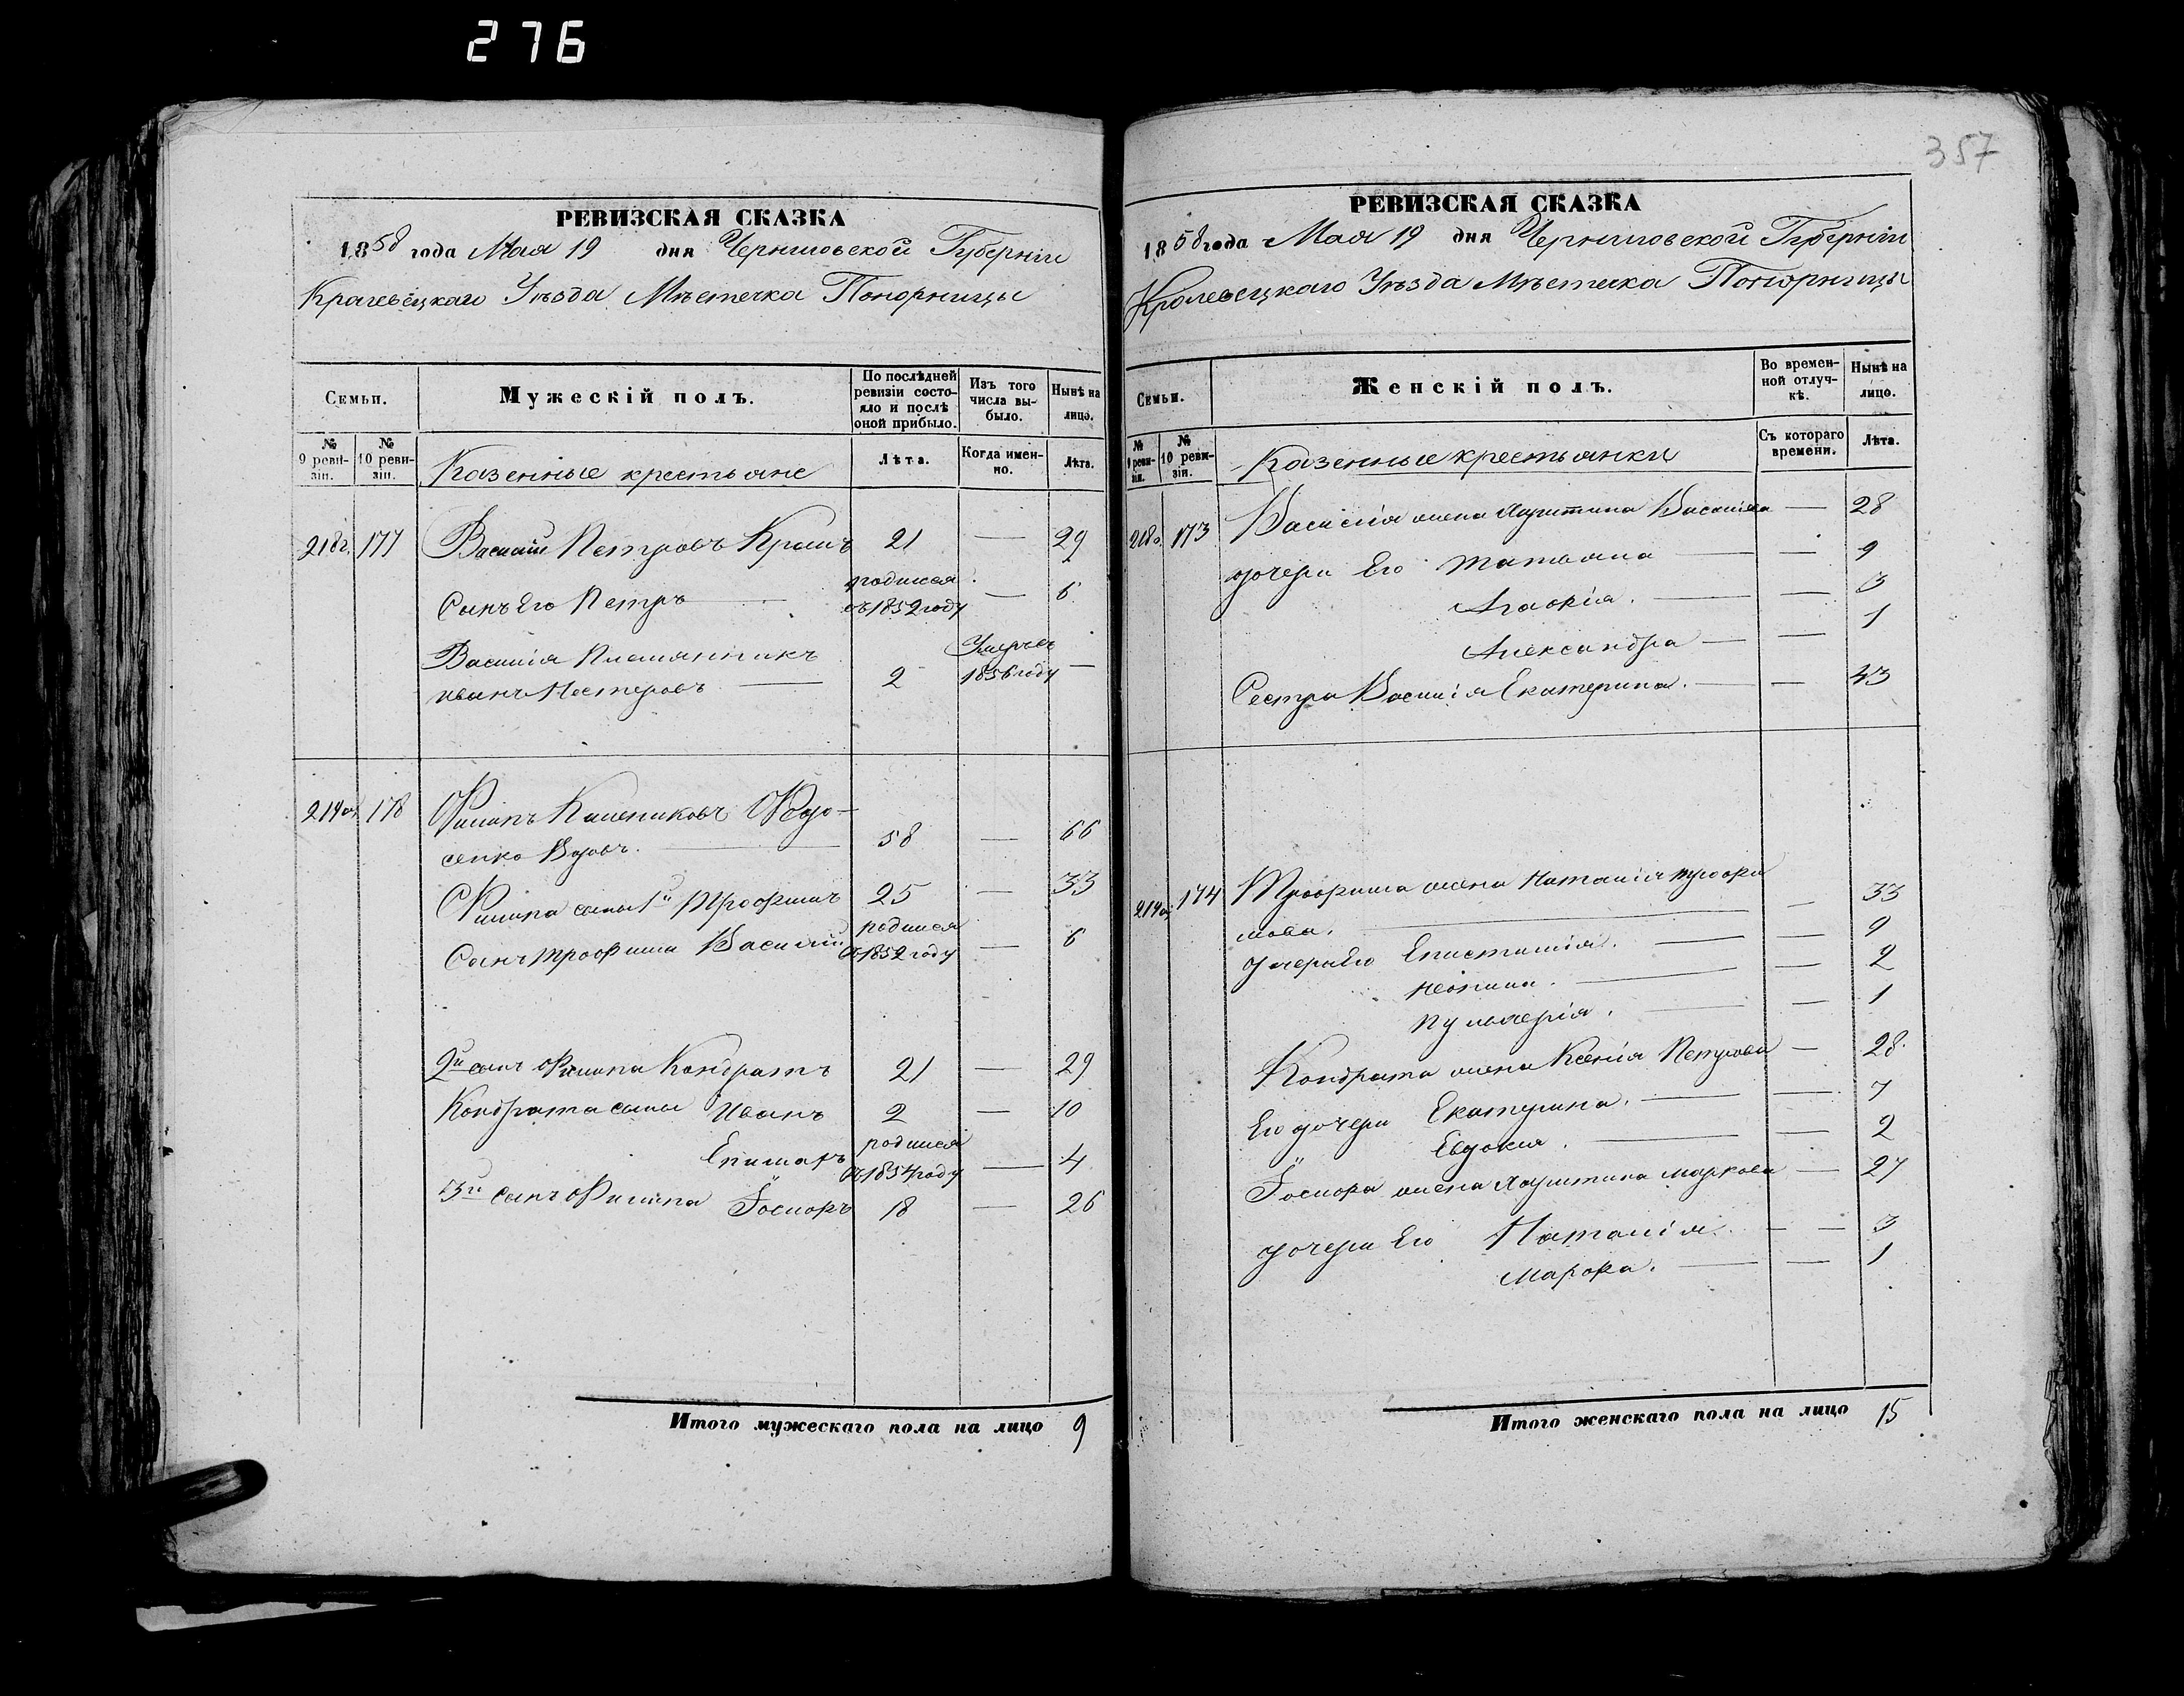 276
РЕВИЗСКАЯ СКАЗКА
1858 года Мая 19 дня Черниговской Губерніи
Кролевецкаго Уѣзда Мѣстечка Понорницы
Семьи.
Мужескій полъ.
По послѣдней ревизіи состояло и послѣ оной прибыло.
Изъ того числа выбыло.
Нынѣ на лицо.
№ 9 ревизіи.
№ 10 ревизіи.
Казенные крестьяне
Лѣта.
Когда именно.
Лѣта.
218 177 Василій Петровъ 21 — 29
Сынъ Его Петръ — родился въ 1852 году — 6
Василія Племянникъ
Иванъ Нестеровъ — 2 Умеръ 1856 году —
214 178 Филипъ
сенко — 58 — 66
Филипа сыны 1й Трофимъ 25 — 33
Сынъ Трофима Василій родился въ 1852 году — 6
2й сынъ Филипа Кондратъ 21 — 29
Кондрата сыны Иванъ 2 — 10
родился въ 1854 году — 4
3й сынъ Филипа 18 — 26
Итого мужескаго пола на лицо 9
357
РЕВИЗСКАЯ СКАЗКА
1858 года Мая 19 дня Черниговской Губерніи
Кролевецкаго Уѣзда Мѣстечка Понорницы
Семьи.
Женскій полъ.
Во временной отлучкѣ.
Нынѣ на лицо.
№ 9 ревизіи.
№ 10 ревизіи.
Казенные крестьянки
Съ котораго времени.
Лѣта.
218 173 Василія жена Харитина — 28
дочери Его Татьяна — — 9
Агафія. — — 3
Александра — — 1
Сестра Василія Екатерина. — — 43
214 174 Трофима жена Наталія Трофи
мова. — — 33
дочери Его Епистимія. — — 9
— — 2
Пульхерія. — — 1
Кондрата жена Ксенія Петрова — 28
Его дочери Екатерина. — — 7
Евдокия. — — 2
жена Харитина Маркова — 27
дочери Его Наталія. — — 3
Марфа. — — 1
Итого женскаго пола на лицо 15